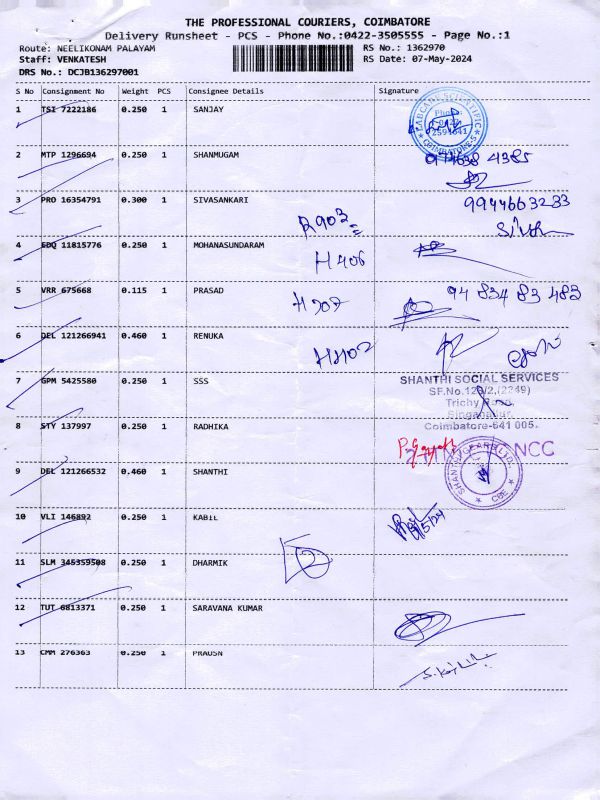 THE PROFESSIONAL COURIERS, COIMBATORE
Delivery Runsheet - PCS - Phone No.:0422-3505555 - Page No.:1
Route: NEELIKONAM PALAYAM RS No.: 1362970
Staff: VENKATESH RS Date: 07-May-2024
DRS No.: DCJB136297001
S No Consignment No Weight PCS Consignee Details Signature
1 TSI 7222186 0.250 1 SANJAY
LABCARE SCIENTIFIC
COIMBATORE-5
2 MTP 1296694 0.250 1 SHANMUGAM
3 PRO 16354791 0.300 1 SIVASANKARI 9944663233
R903
4 EDQ 11815776 0.250 1 MOHANASUNDARAM
H406
5 VRR 675668 0.115 1 PRASAD 94 834 83 483
H907
6 DEL 121266941 0.460 1 RENUKA
H1102
7 GPM 5425580 0.250 1 SSS
SHANTHI SOCIAL SERVICES
Trichy Road,
Singanallur,
Coimbatore-641 005.
8 STY 137997 0.250 1 RADHIKA
NCC
9 DEL 121266532 0.460 1 SHANTHI
CBE
10 VLI 146892 0.250 1 KABIL
11 SLM 345359508 0.250 1 DHARMIK
12 TUT 6813371 0.250 1 SARAVANA KUMAR
13 CMM 276363 0.250 1 PRAUSN